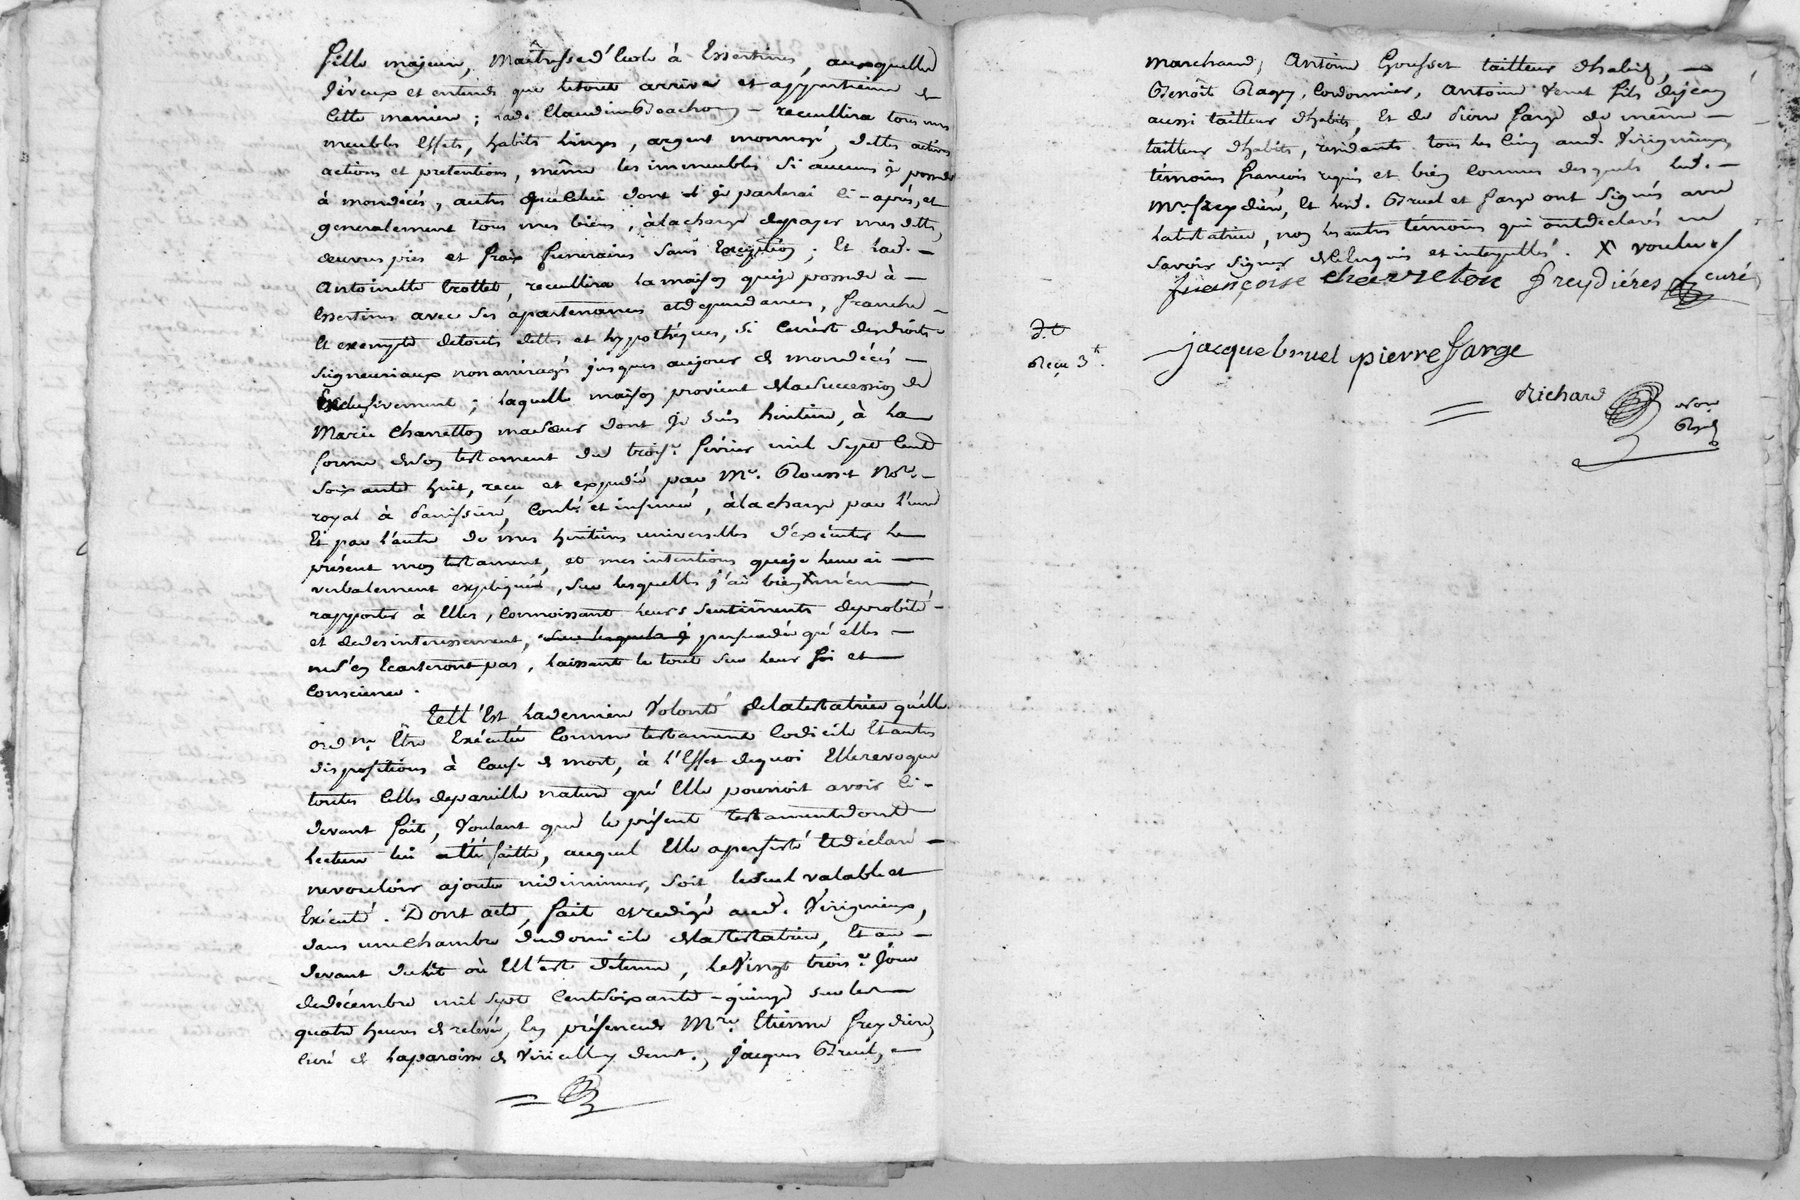 fille majeure, Maîtresse d'Ecole à Essertines, auxquelles
Je veux et entends que letout arrive et appartienne de
Cette maniere ; lad. Claudine recuillira tous mes
meubles Effets, habits linges, argent monnoyé, dettes actives
actions et pretentions, même les immeubles Si aucuns je possede
à mondécés, autres que Celui dont je parlerai Ci-après, et
generalement tous mes biens, àlacharge depayer mes dettes,
œuvres pies et fraix funeraires Sans Exception ; Et lad. —
Antoinette trottet, recuillira lamaison queje possede à —
Essertines avec Ses apartenances etdépendances, franche —
Et exempte detoutes dettes et hypothéques, si Cen'est desdroits
Seigneuriaux nonarreragés jusques aujour de mondécés —
Exclusivement ; laquelle maison provient delasuccession de
Marie Chavretton masœur dont Je Suis heritiere, à la
forme deson testament du trois.e février mil Sept Cent
Soixante huit, reçu et expedié par Me. Rousset No.re —
royal à Panissiere, Conlé et insinué, àlacharge par l'une
Et par l'autre de mes heritieres universelles d'exécuter le
présent mon testament, et mes intentions queje leur ai —
verbalement expliquées, Sur lesquelles j'ai bien X m'en —
rapporter à Elles, Connoissant leurs Sentiments deprobité —
et dedesinteressement, Sur lesquels j persuadée qu'elles —
nes'en Ecarteront pas, laissant le tout Sur leur foi et
Conscience.
Tell'Est laderniere Volonté delatestatrice qu'elle
ord.ne Etre Exécutée Comme testament Codicile Etautres
dispositions à Cause de mort, à l'Effet dequoi Ellerevoque
toutes Celles depareille nature qu'Elle pourroit avoir Ci-
devant fait, Voulant que le présent testamentdont
lecture lui aété faitte, auquel Elle apersisté Etdéclaré —
nevouloir ajouter nidiminuer, soit leseul valable et
Exécuté. Dont acte, fait etredigé aud. Virigneux,
dans unechambre dudomicile delatestatrice, Et au —
devant dulit où Ell'est détenue, leVingt trois.e Jour
dedécembre mil Sept Centsoixante - quinze Surles —
quatre heures de relevée, En présencede M.re Etienne freydiere,
Curé de laparoisse de Viricelle y demt., Jacques Bruel, —
marchand, Antoine Gousset tailleur d'habits, —
Benoît Ragey, Cordonnier, Antoine Venet fils dejean
aussi tailleur d'habits, Et de Pierre farge de même —
tailleur d'habits, residants tous les Cinq aud. Virigneux,
témoins francois requis et bien Connus desquels led. —
Mre. freydiere, Et lesd. Bruel et farge ont Signés avec
latestatrice, non lesautres témoins qui ontdeclarés ne
Savoir Signer deCeEnquis et interpellés. X voulu
françoise chavreton freydiéres curé
jacque bruel pierre farge
Reçu 3.tt
Richard no.re
Royal